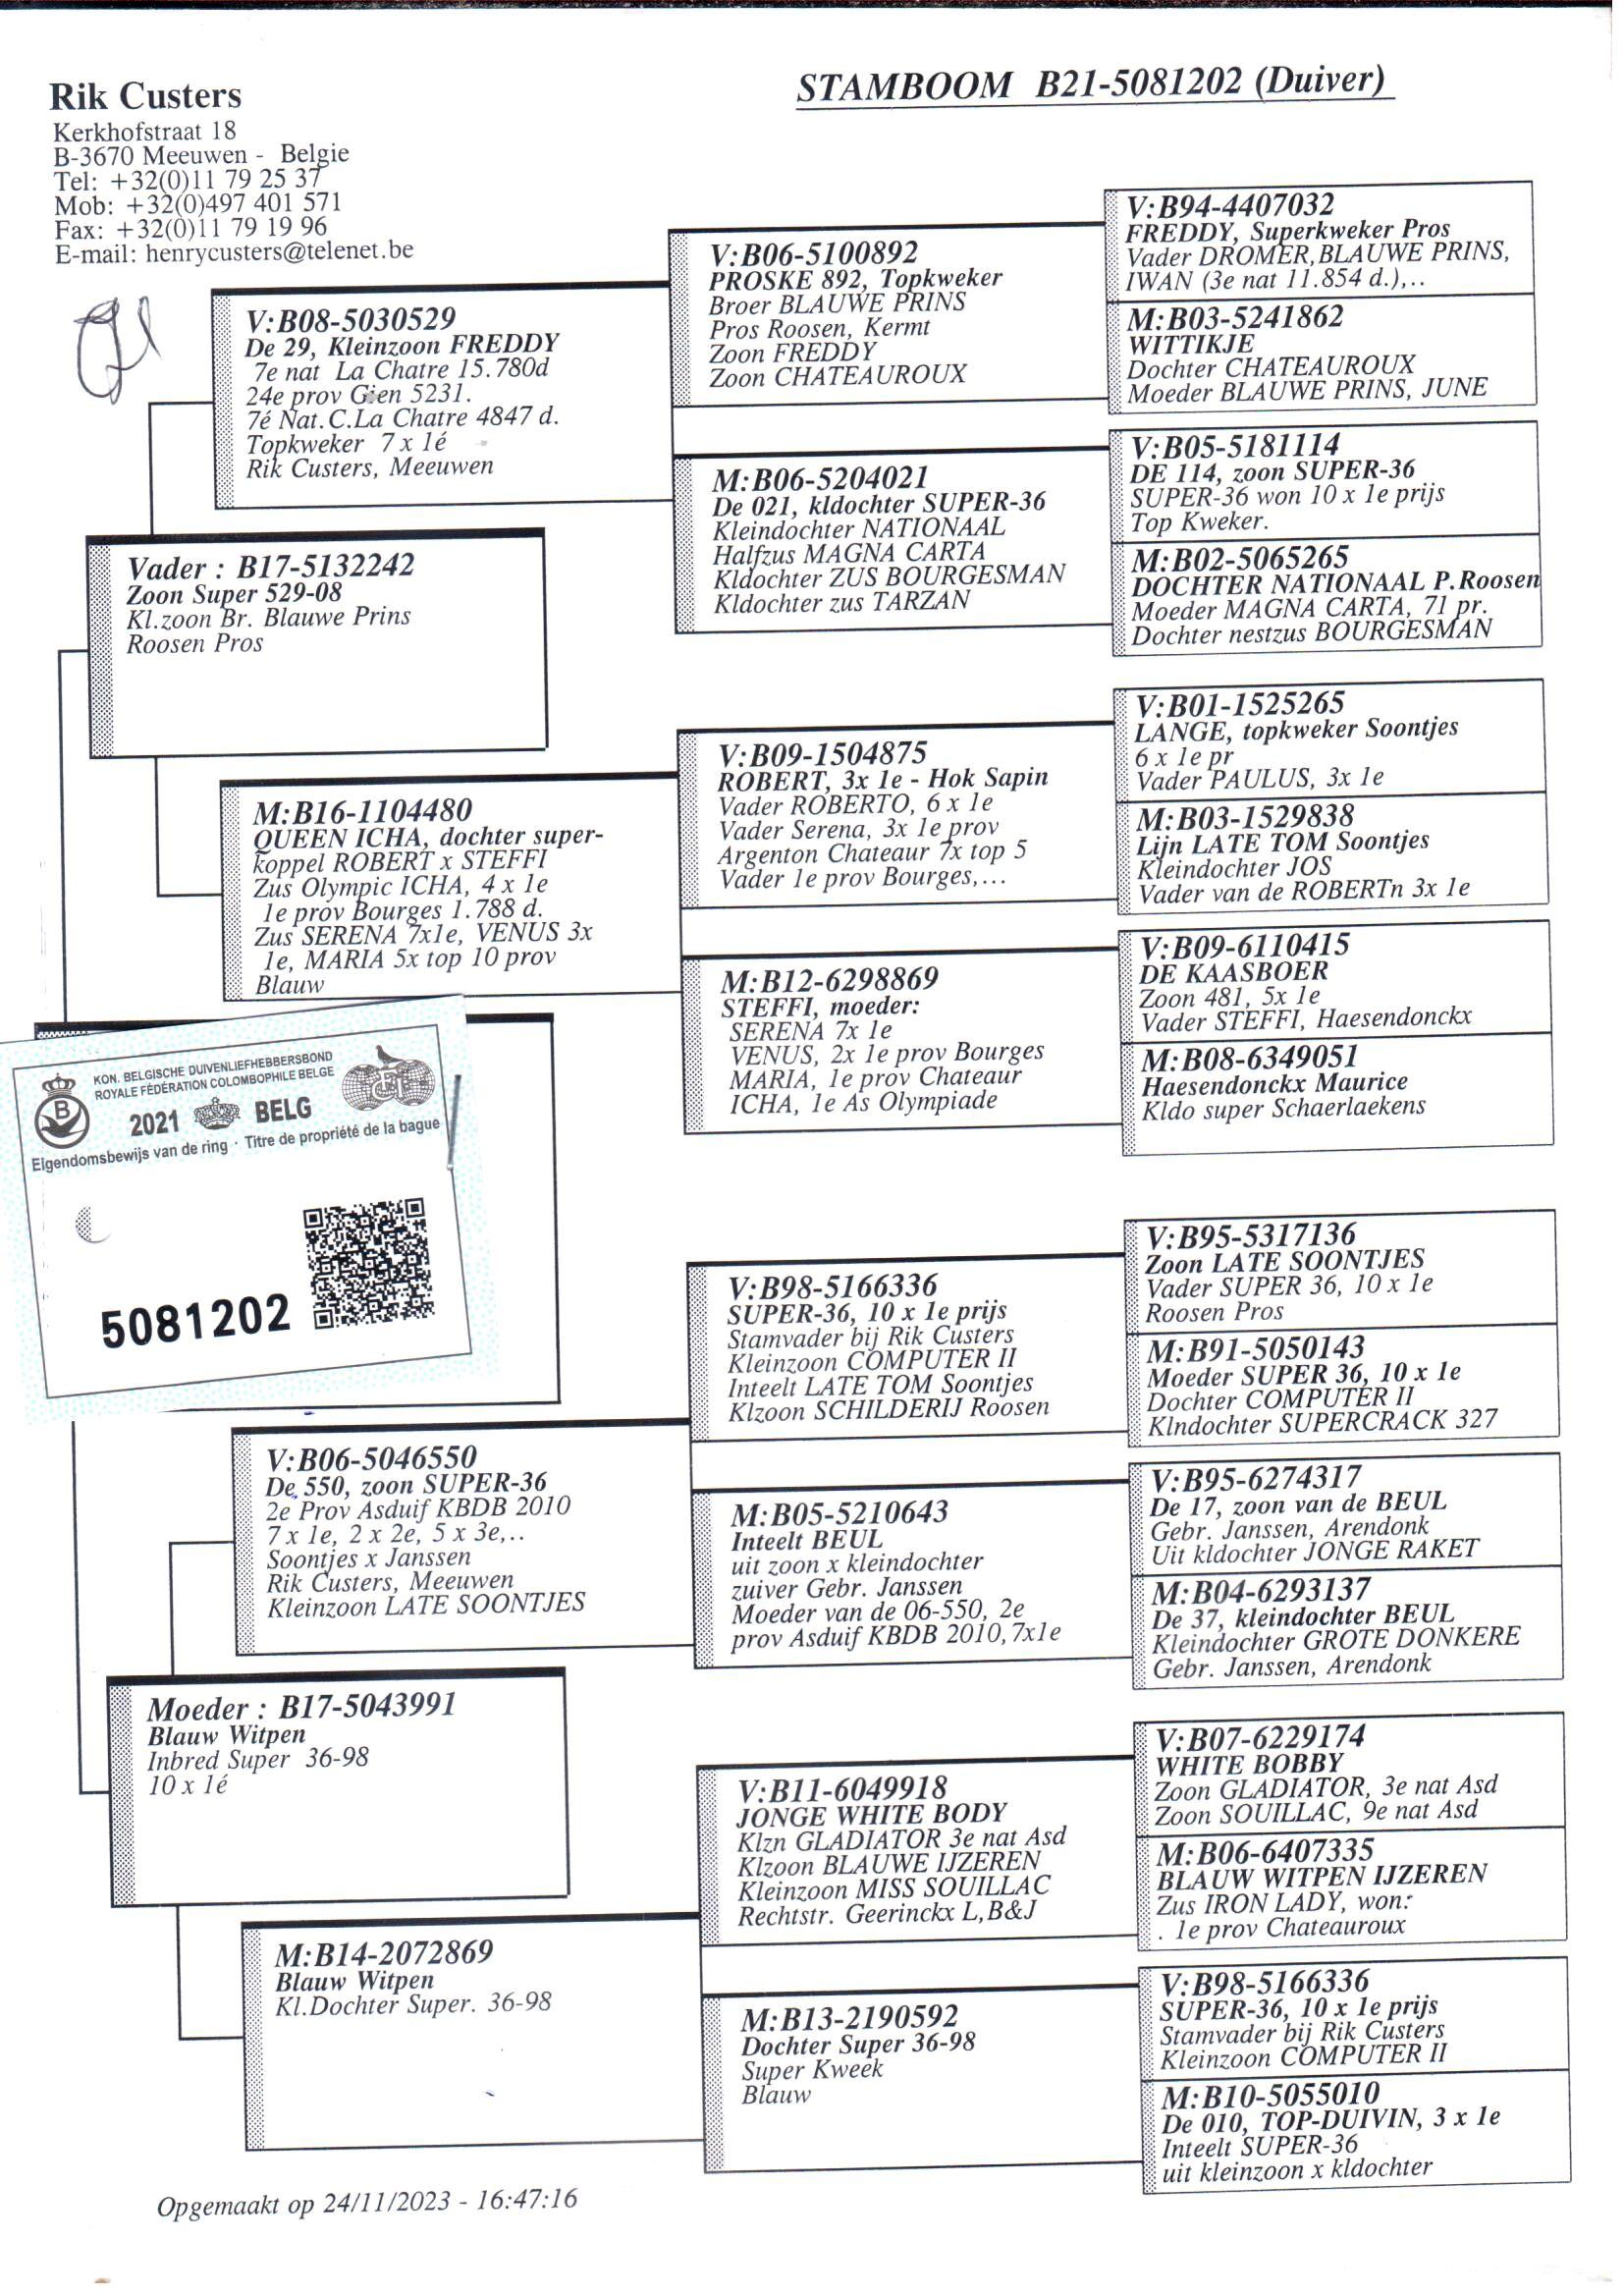 Rik Custers
Kerkhofstraat 18
B-3670 Meeuwen - Belgie
Tel: +32(0)11 79 25 37
Mob: +32(0)497 401 571
Fax: +32(0)11 79 19 96
E-mail: henrycusters@telenet.be
STAMBOOM B21-5081202 (Duiver)
V:B08-5030529
De 29, Kleinzoon FREDDY
7e nat La Chatre 15.780d
24e prov Gien 5231.
7é Nat.C.La Chatre 4847 d.
Topkweker 7 x 1é
Rik Custers, Meeuwen
Vader : B17-5132242
Zoon Super 529-08
Kl.zoon Br. Blauwe Prins
Roosen Pros
M:B16-1104480
QUEEN ICHA, dochter super-
koppel ROBERT x STEFFI
Zus Olympic ICHA, 4 x 1e
1e prov Bourges 1.788 d.
Zus SERENA 7x1e, VENUS 3x
1e, MARIA 5x top 10 prov
Blauw
V:B06-5100892
PROSKE 892, Topkweker
Broer BLAUWE PRINS
Pros Roosen, Kermt
Zoon FREDDY
Zoon CHATEAUROUX
M:B06-5204021
De 021, kldochter SUPER-36
Kleindochter NATIONAAL
Halfzus MAGNA CARTA
Kldochter ZUS BOURGESMAN
Kldochter zus TARZAN
V:B09-1504875
ROBERT, 3x 1e - Hok Sapin
Vader ROBERTO, 6 x 1e
Vader Serena, 3x 1e prov
Argenton Chateaur 7x top 5
Vader 1e prov Bourges,...
M:B12-6298869
STEFFI, moeder:
SERENA 7x 1e
VENUS, 2x 1e prov Bourges
MARIA, 1e prov Chateaur
ICHA, 1e As Olympiade
V:B94-4407032
FREDDY, Superkweker Pros
Vader DROMER,BLAUWE PRINS,
IWAN (3e nat 11.854 d.),..
M:B03-5241862
WITTIKJE
Dochter CHATEAUROUX
Moeder BLAUWE PRINS, JUNE
V:B05-5181114
DE 114, zoon SUPER-36
SUPER-36 won 10 x 1e prijs
Top Kweker.
M:B02-5065265
DOCHTER NATIONAAL P.Roosen
Moeder MAGNA CARTA, 71 pr.
Dochter nestzus BOURGESMAN
V:B01-1525265
LANGE, topkweker Soontjes
6 x 1e pr
Vader PAULUS, 3x 1e
M:B03-1529838
Lijn LATE TOM Soontjes
Kleindochter JOS
Vader van de ROBERTn 3x 1e
V:B09-6110415
DE KAASBOER
Zoon 481, 5x 1e
Vader STEFFI, Haesendonckx
M:B08-6349051
Haesendonckx Maurice
Kldo super Schaerlaekens
KON. BELGISCHE DUIVENLIEFHEBBERSBOND
ROYALE FÉDÉRATION COLOMBOPHILE BELGE
B
2021 BELG
Eigendomsbewijs van de ring · Titre de propriété de la bague
5081202
V:B06-5046550
De 550, zoon SUPER-36
2e Prov Asduif KBDB 2010
7 x 1e, 2 x 2e, 5 x 3e,..
Soontjes x Janssen
Rik Custers, Meeuwen
Kleinzoon LATE SOONTJES
Moeder : B17-5043991
Blauw Witpen
Inbred Super 36-98
10 x 1é
M:B14-2072869
Blauw Witpen
Kl.Dochter Super. 36-98
V:B98-5166336
SUPER-36, 10 x 1e prijs
Stamvader bij Rik Custers
Kleinzoon COMPUTER II
Inteelt LATE TOM Soontjes
Klzoon SCHILDERIJ Roosen
M:B05-5210643
Inteelt BEUL
uit zoon x kleindochter
zuiver Gebr. Janssen
Moeder van de 06-550, 2e
prov Asduif KBDB 2010,7x1e
V:B11-6049918
JONGE WHITE BODY
Klzn GLADIATOR 3e nat Asd
Klzoon BLAUWE IJZEREN
Kleinzoon MISS SOUILLAC
Rechtstr. Geerinckx L,B&J
M:B13-2190592
Dochter Super 36-98
Super Kweek
Blauw
V:B95-5317136
Zoon LATE SOONTJES
Vader SUPER 36, 10 x 1e
Roosen Pros
M:B91-5050143
Moeder SUPER 36, 10 x 1e
Dochter COMPUTER II
Klndochter SUPERCRACK 327
V:B95-6274317
De 17, zoon van de BEUL
Gebr. Janssen, Arendonk
Uit kldochter JONGE RAKET
M:B04-6293137
De 37, kleindochter BEUL
Kleindochter GROTE DONKERE
Gebr. Janssen, Arendonk
V:B07-6229174
WHITE BOBBY
Zoon GLADIATOR, 3e nat Asd
Zoon SOUILLAC, 9e nat Asd
M:B06-6407335
BLAUW WITPEN IJZEREN
Zus IRON LADY, won:
. 1e prov Chateauroux
V:B98-5166336
SUPER-36, 10 x 1e prijs
Stamvader bij Rik Custers
Kleinzoon COMPUTER II
M:B10-5055010
De 010, TOP-DUIVIN, 3 x 1e
Inteelt SUPER-36
uit kleinzoon x kldochter
Opgemaakt op 24/11/2023 - 16:47:16